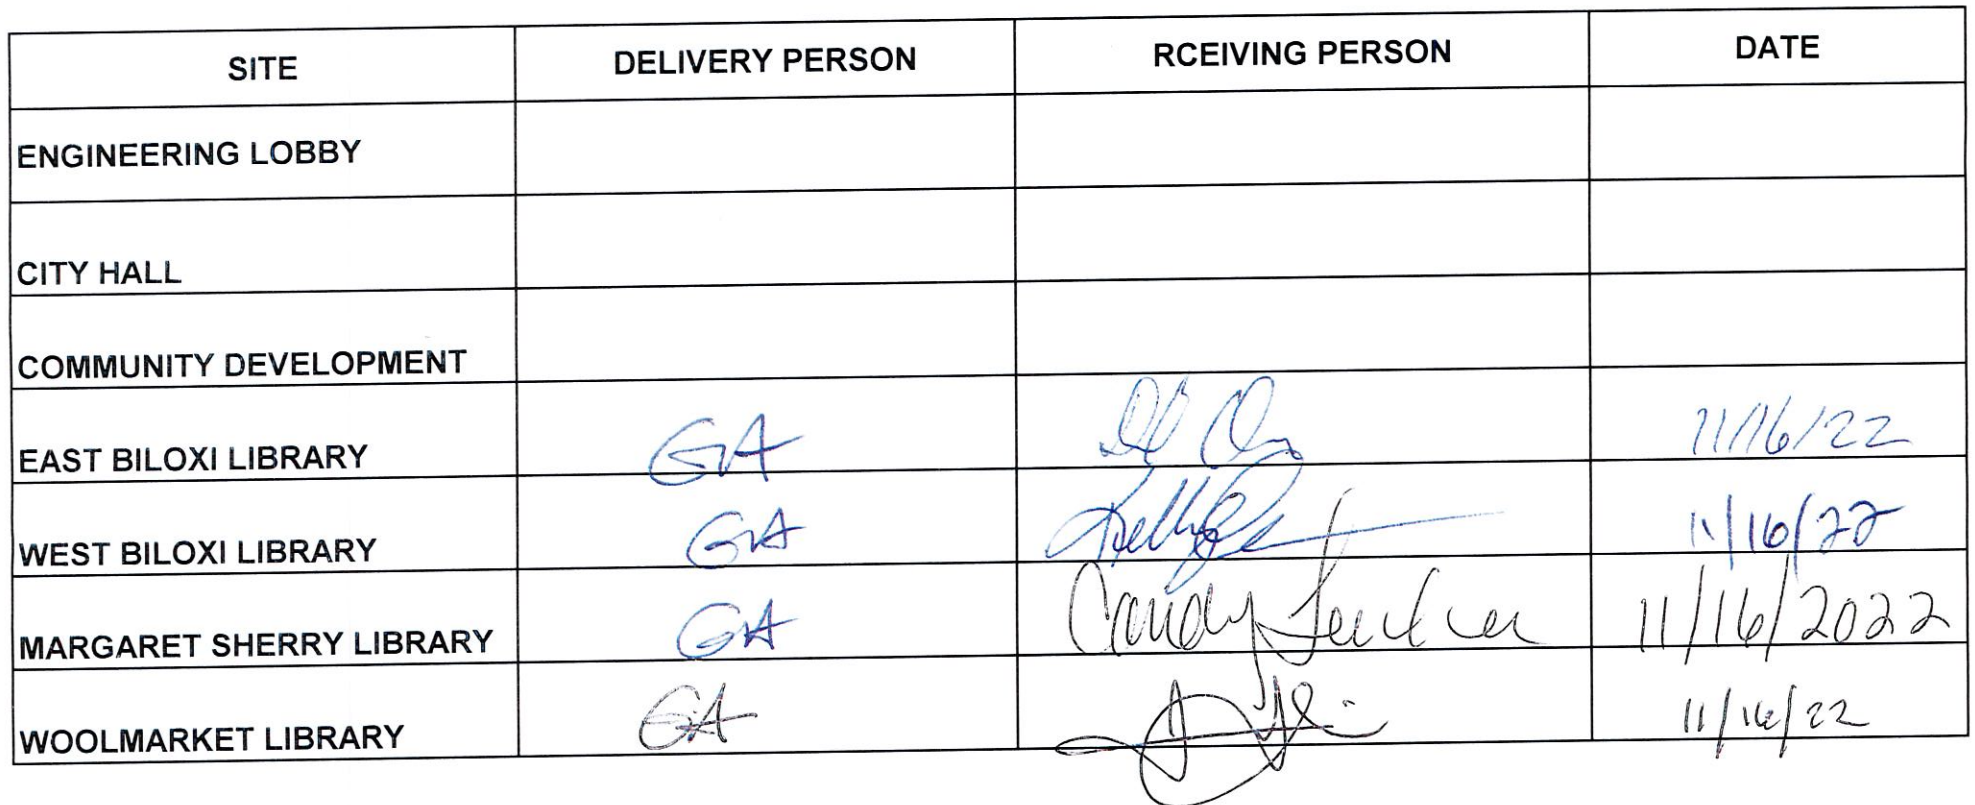 SITE DELIVERY PERSON RCEIVING PERSON DATE
ENGINEERING LOBBY
CITY HALL
COMMUNITY DEVELOPMENT
EAST BILOXI LIBRARY GA 11/16/22
WEST BILOXI LIBRARY GA Kelly 11/16/22
MARGARET SHERRY LIBRARY GA Candy 11/16/2022
WOOLMARKET LIBRARY GA 11/16/22